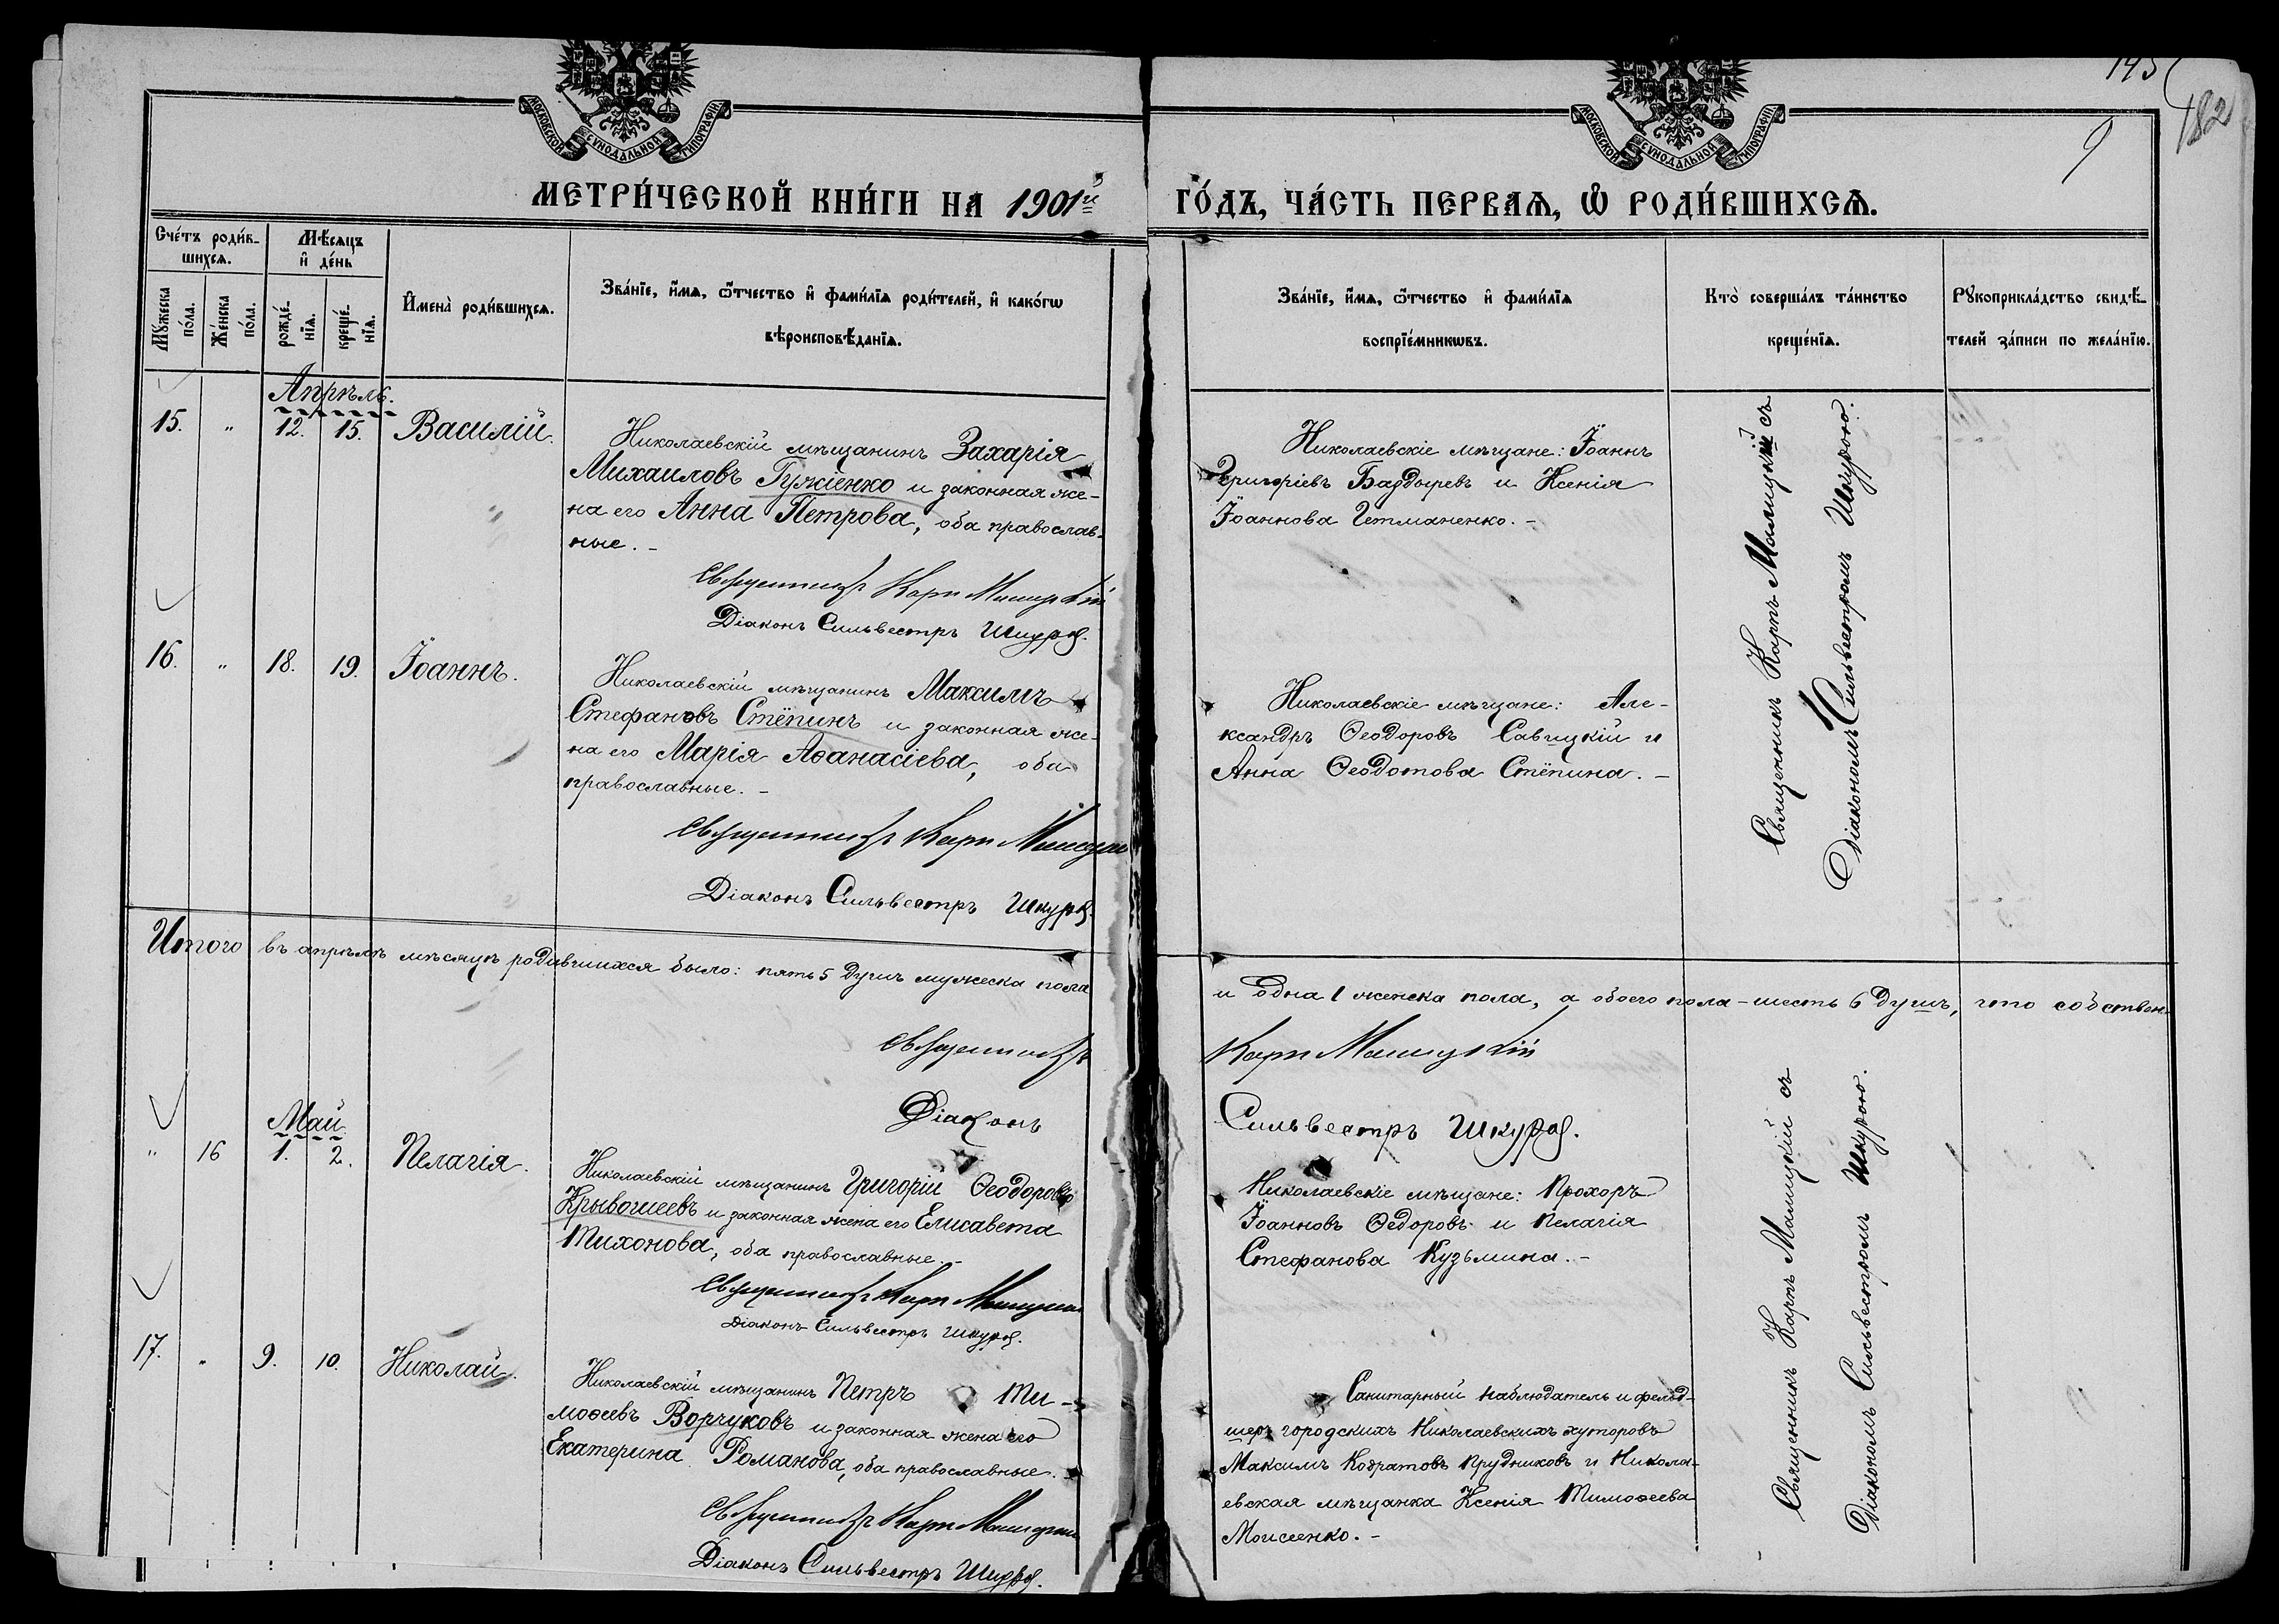 145
182
9
МОСКОВСКОЙ СѴНОДАЛЬНОЙ ТИПОГРАФІИ
МОСКОВСКОЙ СѴНОДАЛЬНОЙ ТИПОГРАФІИ
МЕТРИ́ЧЕСКОЙ КНИ́ГИ НА 1901й ГО́ДЪ, ЧА́СТЬ ПЕРВАѦ, Ѽ РОДИ́ВШИХСѦ.
Сче́тъ роди́в-
шихсѧ.
Мѣ́сѧцъ
и҆ де́нь
Мꙋ́жеска
по́ла.
Же́нска
по́ла.
рожде́-
нїѧ.
креще́-
нїѧ.
И҆мена̀ роди́вшихсѧ.
Зва́нїе, и҆́мѧ, ѻ҆́тчество и҆ фами́лїѧ роди́телей, и҆ како́гѡ
вѣроисповѣ́данїѧ.
Зва́нїе, и҆́мѧ, ѻ҆́тчество и҆ фами́лїѧ
воспрїе́мникѡвъ.
Кто̀ соверша́лъ та́инство
креще́нїѧ.
Рꙋкоприкла́дство свидѣ́-
телей за́писи по жела́нїю.
Апрѣль.
15. " 12. 15. Василій.
Николаевскій мѣщанинъ Захарія
Михаиловъ Гужіенко и законная же-
на его Анна Петрова, оба православ-
ные. -
Священникъ Карпъ Малицкій
Діаконъ Сильвестръ Шкура.
Николаевскіе мѣщане: Іоаннъ
Григоріевъ Баздыревъ и Ксенія
Іоаннова Гетманенко. -
Священникъ Карпъ Малицкій съ
Діакономъ Сильвестромъ Шкурою.
16. " 18. 19. Іоаннъ.
Николаевскій мѣщанинъ Максимъ
Стефановъ Стёпинъ и законная же-
на его Марія Аѳанасіева, оба
православные. -
Священникъ Карпъ Малицкій
Діаконъ Сильвестръ Шкура.
Николаевскіе мѣщане: Але-
ксандръ Ѳеодоровъ Савицкій и
Анна Ѳеодотова Стёпина. -
Итого въ апрѣлѣ мѣсяцѣ родившихся было: пять 5 душъ мужеска пола и одна 1 женска пола, а обоего пола - шесть 6 душъ, что собствен-
Священникъ Карпъ Малицкій
Діаконъ Сильвестръ Шкура.
Май.
" 16 1. 2. Пелагія.
Николаевскій мѣщанинъ Григорій Ѳеодоровъ
Крывошеевъ и законная жена его Елисавета
Тихонова, оба православные. -
Священникъ Карпъ Малицкій
Діаконъ Сильвестръ Шкура.
Николаевскіе мѣщане: Прохоръ
Іоанновъ Ѳедоровъ и Пелагія
Стефанова Кузьмина. -
Священникъ Карпъ Малицкій съ
Діакономъ Сильвестромъ Шкурою.
17. " 9. 10. Николай.
Николаевскій мѣщанинъ Петръ Ти-
моѳеевъ Ворчуковъ и законная жена его
Екатерина Романова, оба православные. -
Священникъ Карпъ Малицкій
Діаконъ Сильвестръ Шкура.
Санитарный наблюдатель и фельд-
шеръ городскихъ Николаевскихъ хуторовъ
Максимъ Кодратовъ Прудниковъ и Никола-
евская мѣщанка Ксенія Тимоѳеева
Моисеенко. -